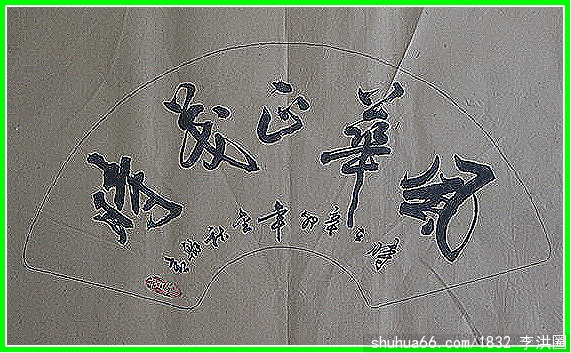 風華正茂時
辛卯年金秋
shuhua66.com/1832 李洪圖